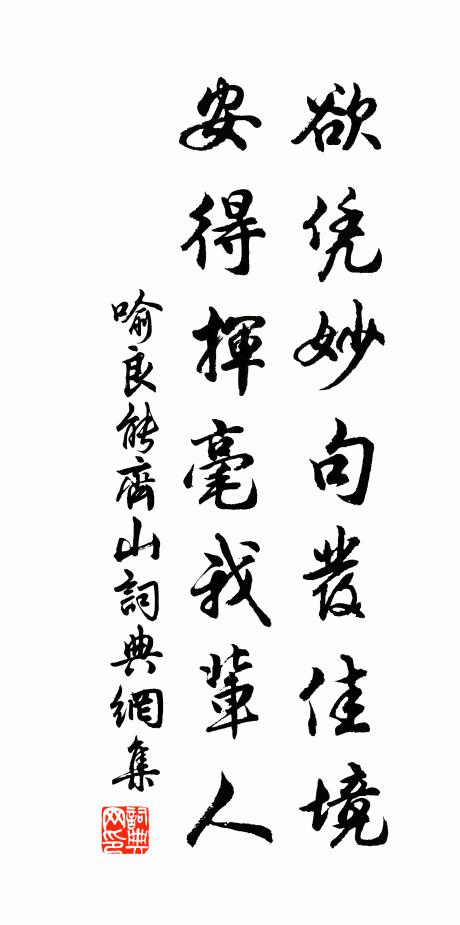 欲凭妙句發佳境
安得揮毫我輩人
喻良能齊山詞典網集
詞典网印